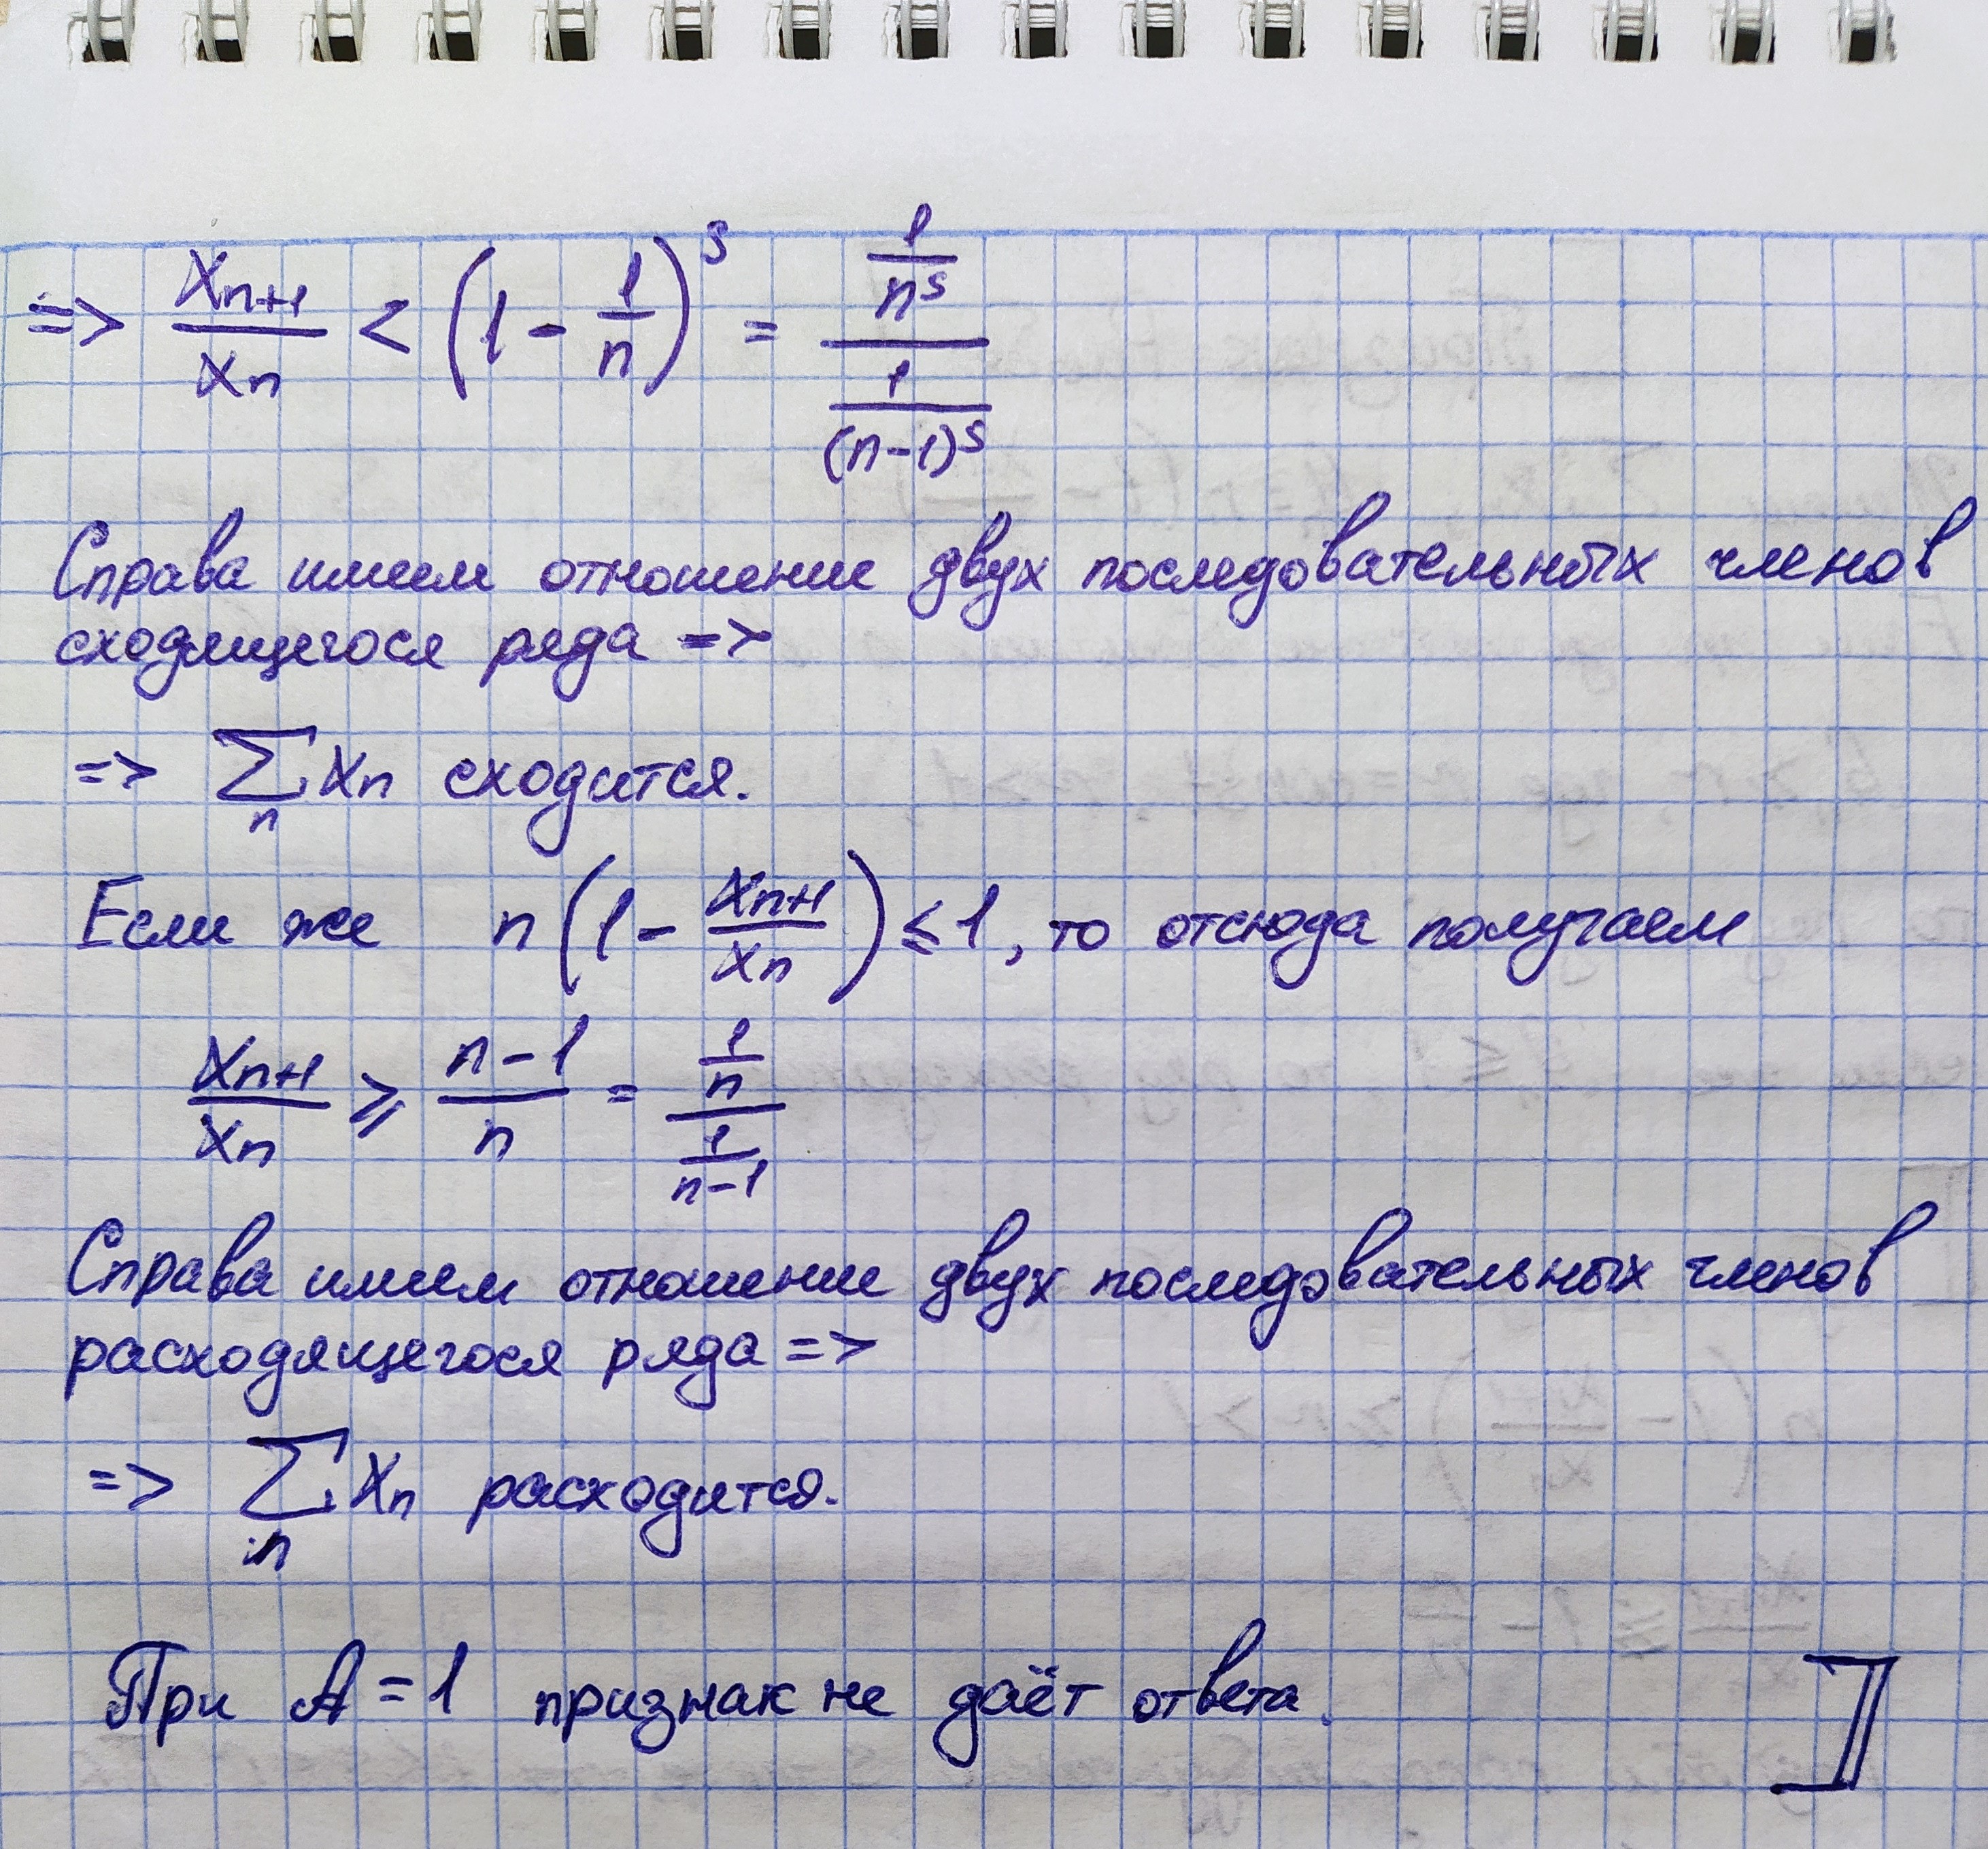 => x_{n+1}/x_n < (1 - 1/n)^s = (1/n^s)/(1/(n-1)^s)
Справа имеем отношение двух последовательных членов
сходящегося ряда =>
=> ∑_n x_n сходится.
Если же n(1 - x_{n+1}/x_n) ≤ 1, то отсюда получаем
x_{n+1}/x_n ≥ (n-1)/n = (1/n)/(1/(n-1))
Справа имеем отношение двух последовательных членов
расходящегося ряда =>
=> ∑_n x_n расходится.
При A = 1 признак не даёт ответа.
]